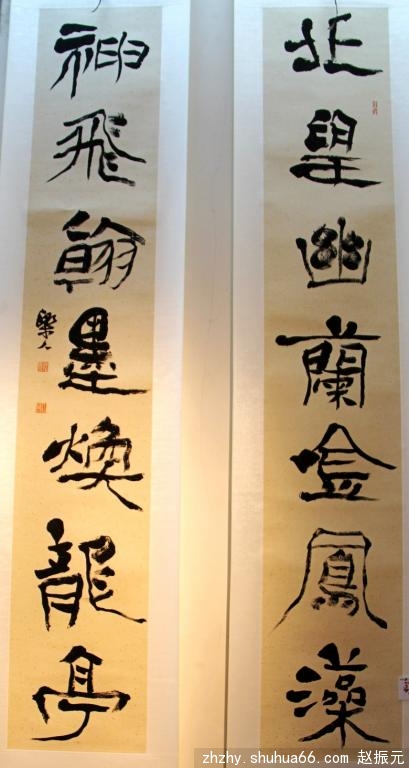 幽蘭唫鳳藻
神飛翰墨煥龍亭
樂人
zhzhy.shuhua66.com 赵振元